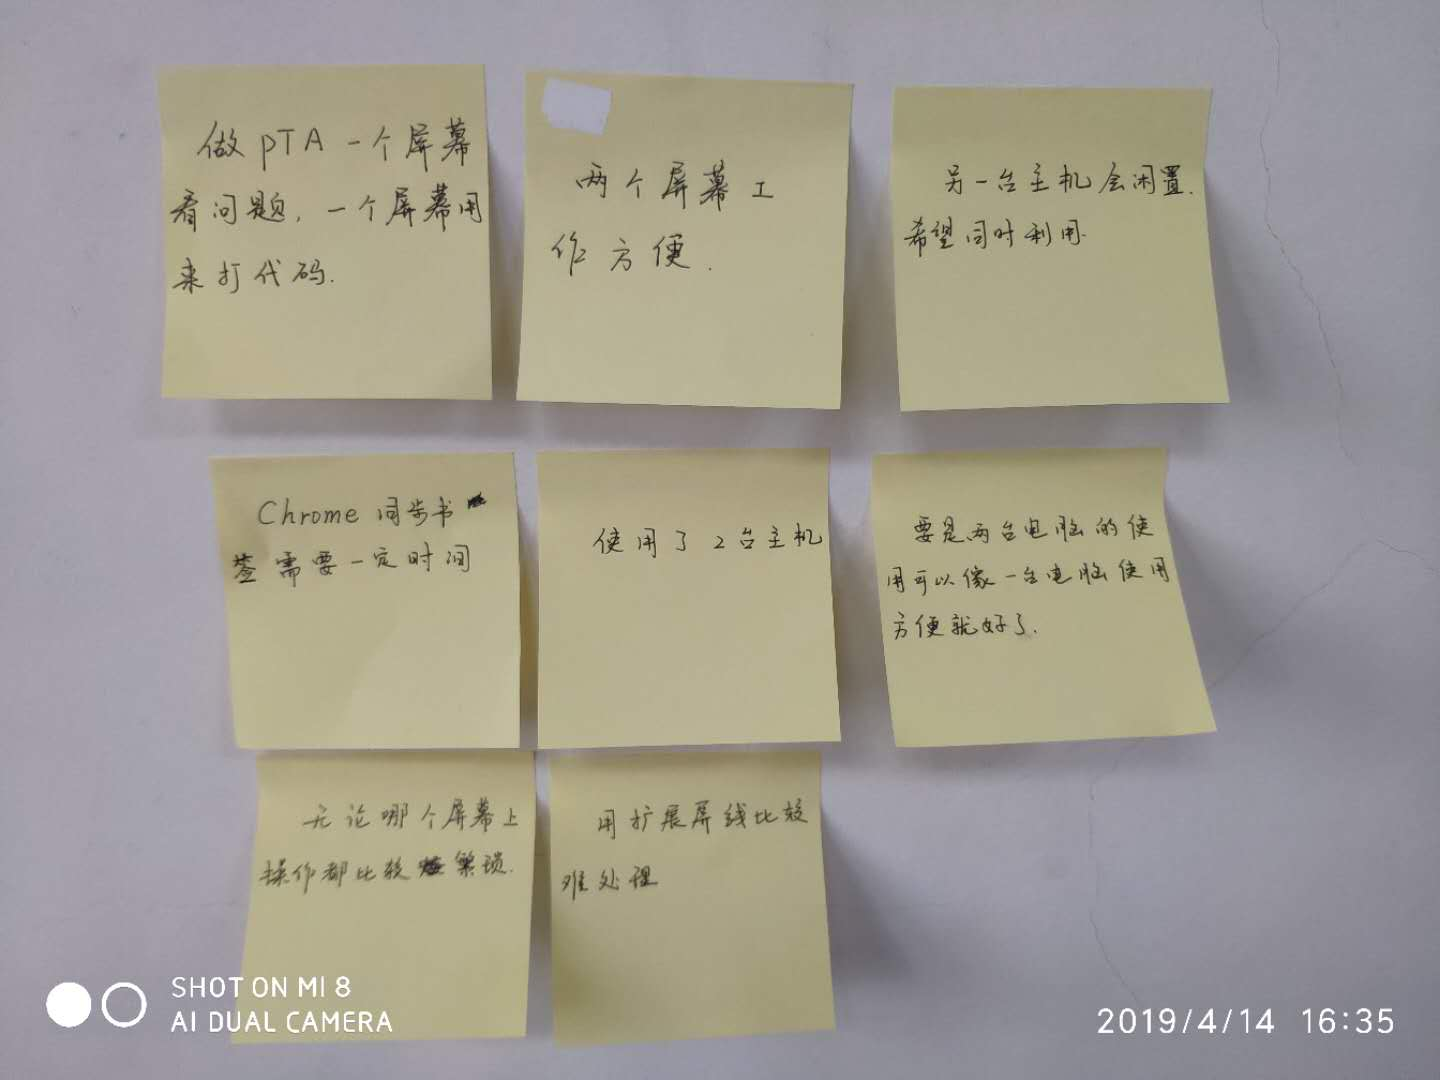 做 PTA 一个屏幕
看问题，一个屏幕用
来打代码.
两个屏幕工
作方便.
另一台主机会闲置.
希望同时利用.
Chrome 同步书
签需要一定时间
使用了 2 台主机
要是两台电脑的使
用可以像一台电脑使用
方便就好了.
无论哪个屏幕上
操作都比较 繁琐.
用扩展屏线比较
难处理
SHOT ON MI 8
AI DUAL CAMERA
2019/4/14 16:35